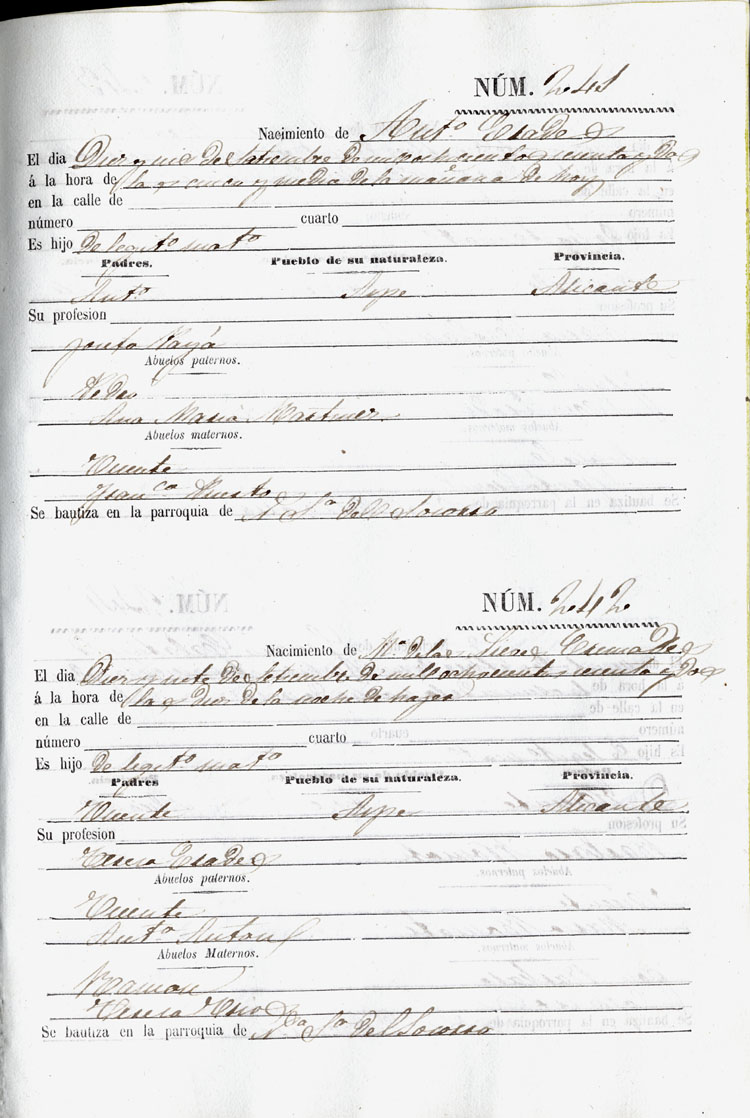 NÚM. 241
Nacimiento de Antº Prades
El dia Diez y seis de Setiembre de mil ochocientos setenta y dos
á la hora de las cinco y media de la mañana de hoy
en la calle de
número cuarto
Es hijo de legitº matº
Padres. Pueblo de su naturaleza. Provincia.
Antº Aspe Alicante
Su profesion
Josefa Payá
Abuelos paternos.
Pedro
Ana Maria Martinez
Abuelos maternos.
Vicente
Franca
Se bautiza en la parroquia de N. Sª del Socorro
NÚM. 242
Nacimiento de Mª de las Nieves Cremades
El dia Diez y siete de Setiembre de mil ochocientos setenta y dos
á la hora de las dies de la noche de
en la calle de
número cuarto
Es hijo de legitº matº
Padres Pueblo de su naturaleza. Provincia.
Vicente Aspe Alicante
Su profesion
Teresa Prades
Abuelos paternos.
Vicente
Antª Anton
Abuelos Maternos.
Ramon
Teresa
Se bautiza en la parroquia de Nª Sª del Socorro